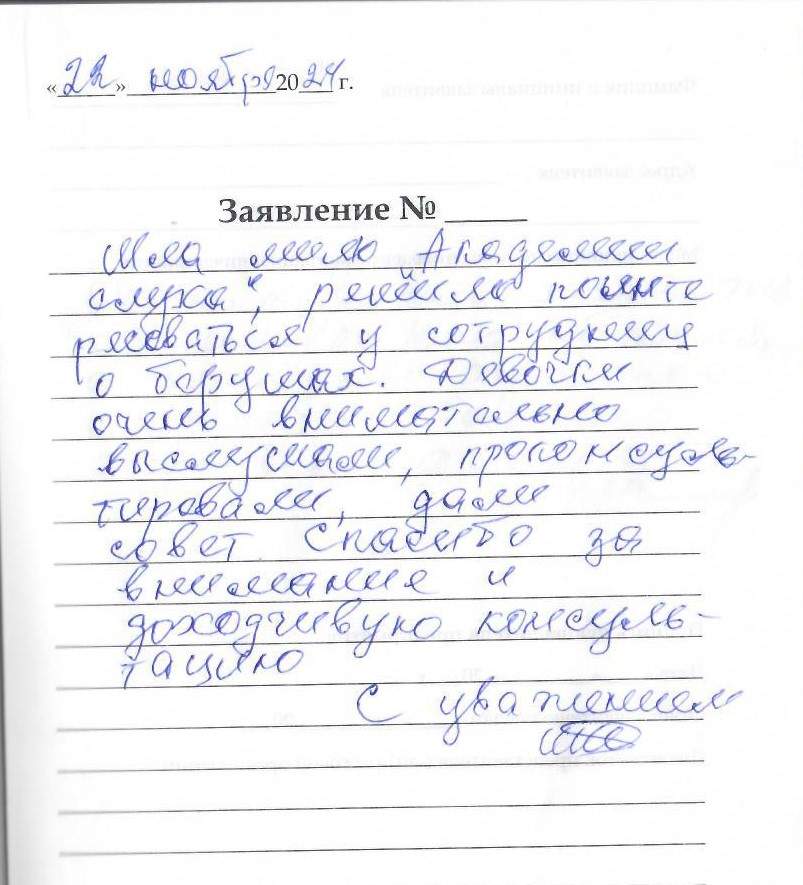 «22» ноября 2024 г.
Заявление № ____
Шла мимо Академии
слуха", решила поинте
ресоваться у сотрудниц
о берушах. Девочки
очень внимательно
выслушали, проконсуль-
тировали, дали
совет. Спасибо за
внимание и
доходчивую консуль-
тацию
С уважением